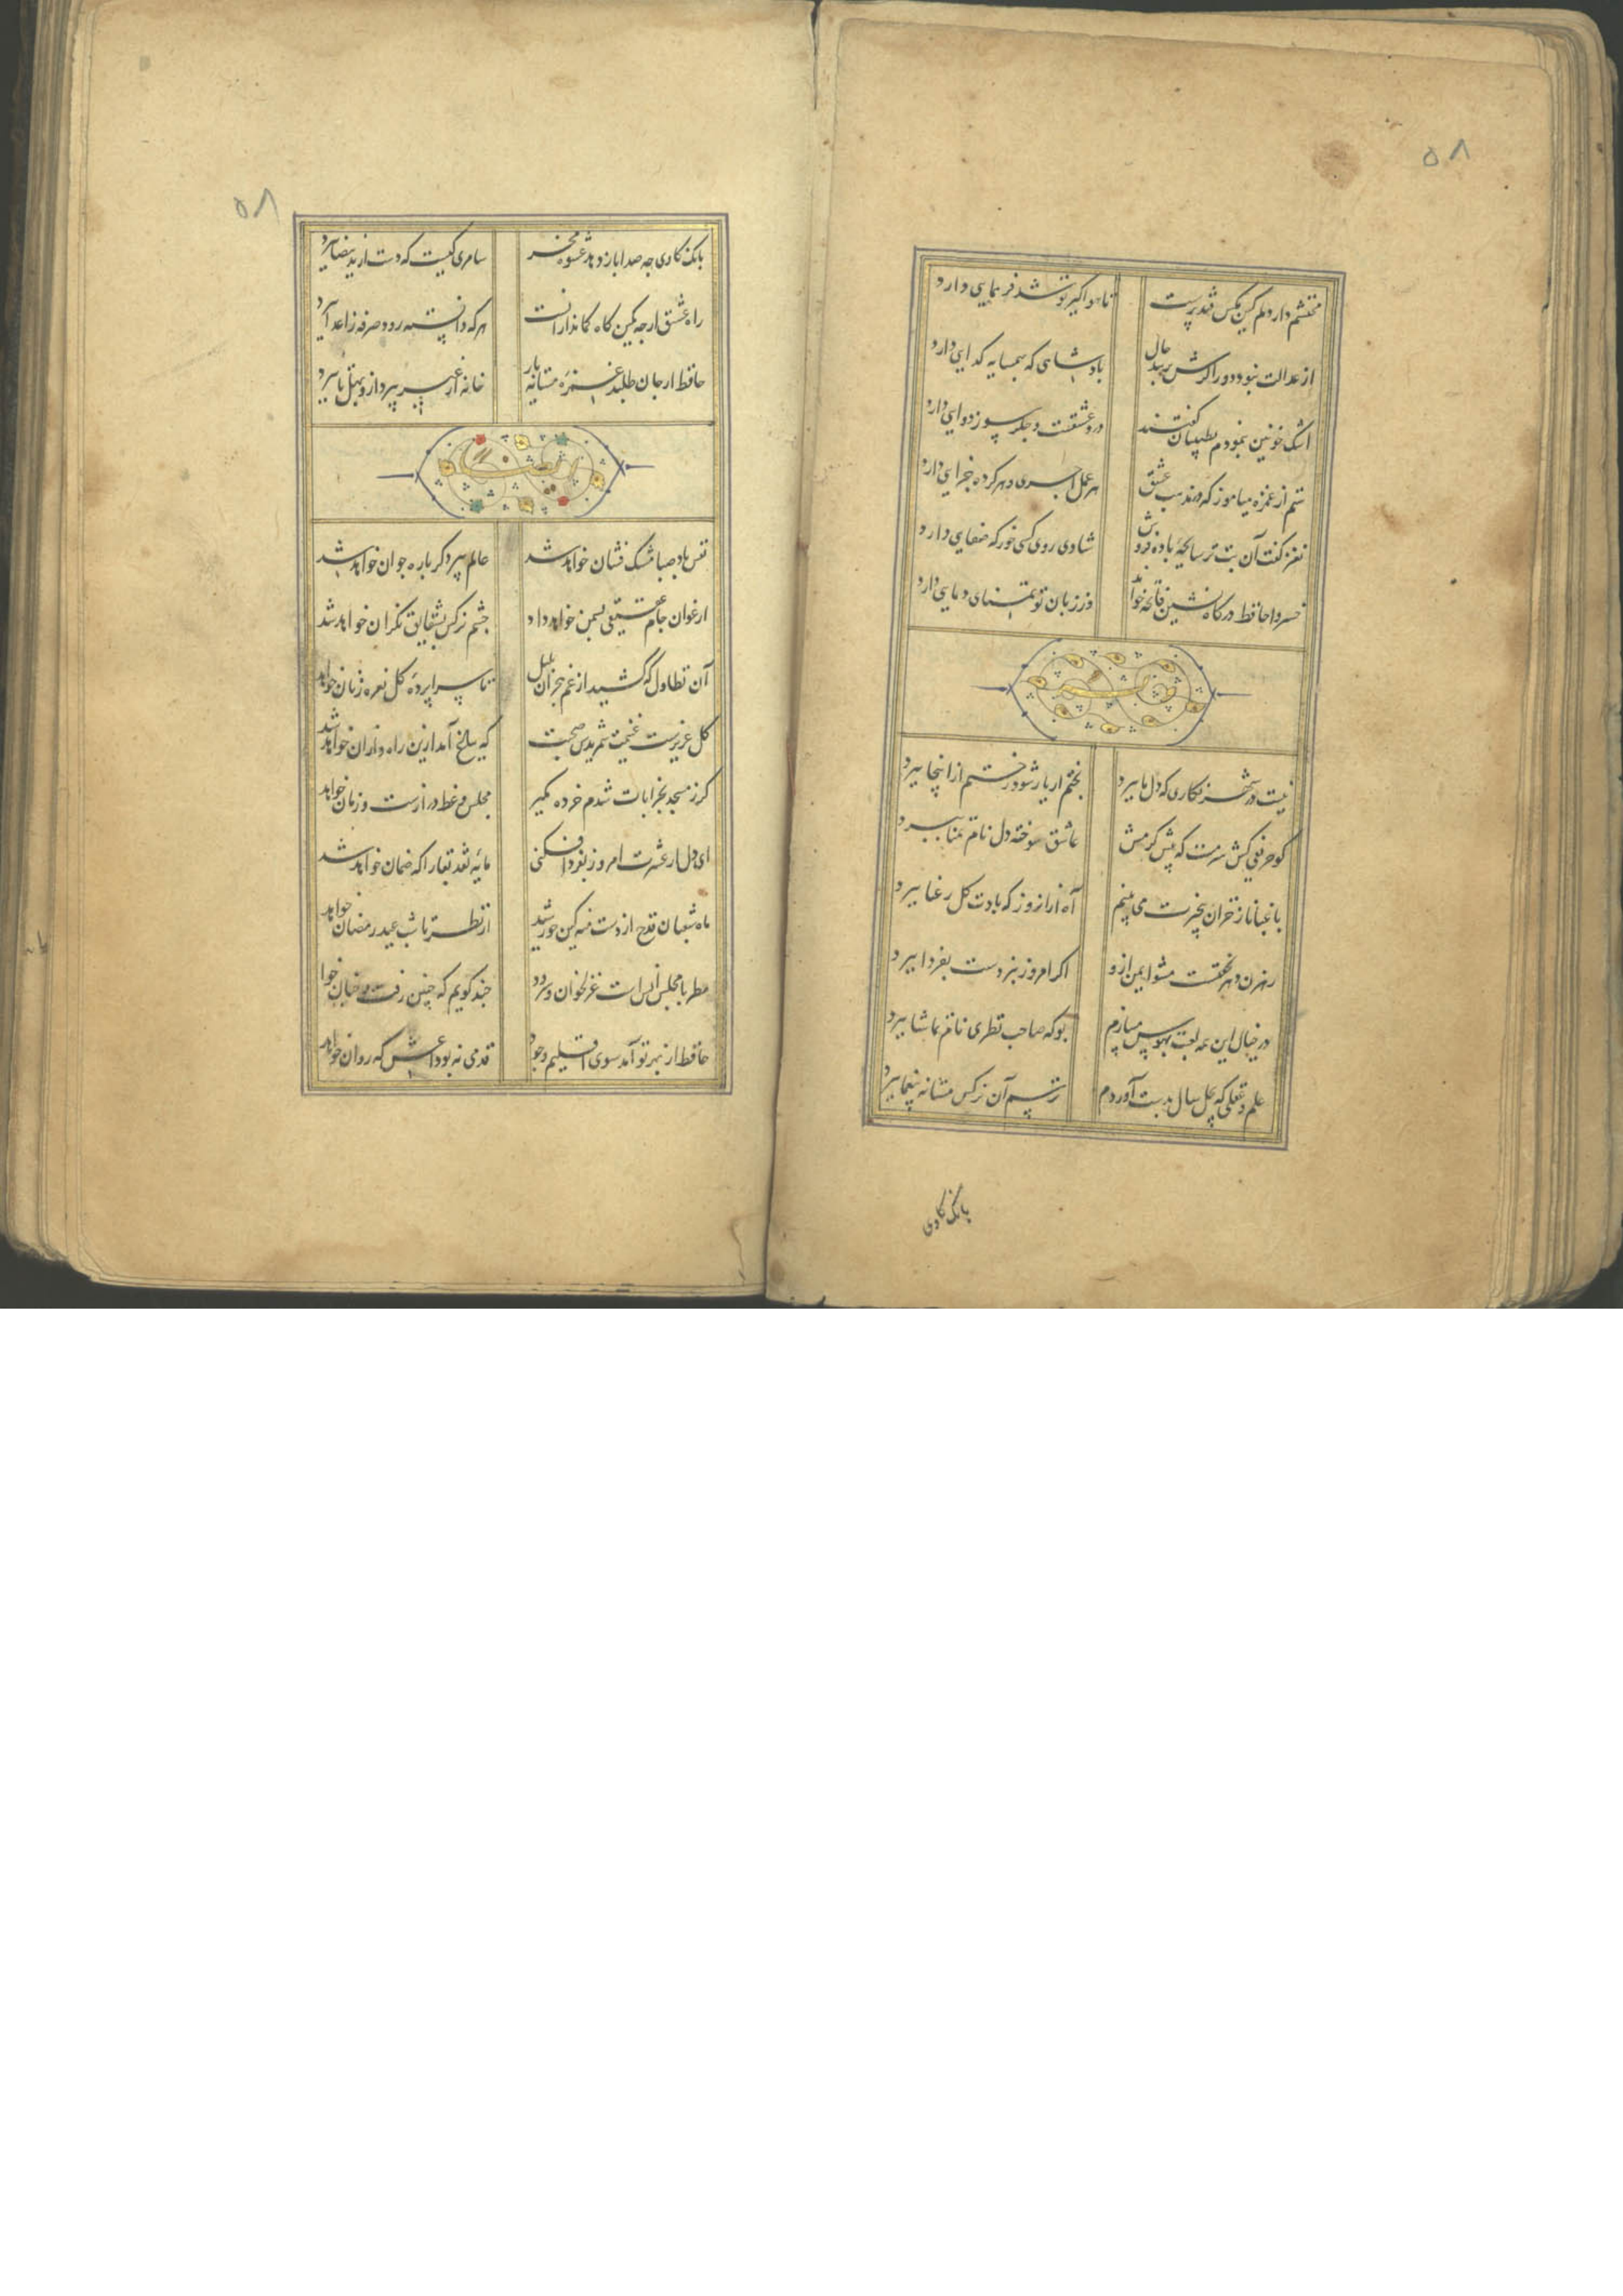 ۵۸
محتشم دار دلم کین مکس قند پرست
تا هواگیر تو شد فر همایی دارد
از عدالت نبود دور اکرش پرسد حال
پادشاهی که بهمسایه کدایی دارد
اشک خونین بنمودم بطبیبان کفتند
درد عشقست و جگرسوز دوایی دارد
ستم از غمزه میاموز که در مذهب عشق
هر عمل اجری و هر کرده جزایی دارد
نغز کفت آن بت ترسابچهٔ باده فروش
شادی روی کسی خور که صفایی دارد
خسروا حافظ درکاه نشین فاتحه خواند
وز زبان تو تمنای دعایی دارد
نیست در شهر نکاری که دل ما ببرد
بختم ار یار شود رختم از اینجا ببرد
کو حریفی کش سرمست که پیش کرمش
عاشق سوخته دل نام تمنا ببرد
باغبانا ز خزان بیخبرت می بینم
آه از آن روز که بادت کل رعنا ببرد
رهزن دهر نخفتست مشو ایمن ازو
اکر امروز نبردست بفردا ببرد
در خیال این همه لعبت بهوس میبازم
بو که صاحب نظری نام تماشا ببرد
علم و فضلی که چل سال بدست آوردم
ترسم آن نرکس مستانه بیغما ببرد
بانک کاوی
۵۸
بانک کاوی چه صدا باز دهد عشوه مخر
سامری کیست که دست از ید بیضا ببرد
راه عشق ارچه کمین کاه کماندارانست
هر که دانسته رود صرفه ز اعدا ببرد
حافظ ار جان طلبد غمزه مستانه یار
خانه از غیر بپرداز و بهل تا ببرد
نفس باد صبا مشک فشان خواهد شد
عالم پیر دکر باره جوان خواهد شد
ارغوان جام عقیقی بسمن خواهد داد
چشم نرکس بشقایق نکران خواهد شد
آن تطاول که کشید از غم هجران بلبل
تا سراپردهٔ کل نعره زنان خواهد
کل عزیزست غنیمت شمریدش صحبت
که بباغ آمد ازین راه و از آن خواهد شد
کر ز مسجد بخرابات شدم خرده مکیر
مجلس وعظ درازست و زمان خواهد
ای دل ار عشرت امروز بفردا فکنی
مایهٔ نقد بقا را که ضمان خواهد شد
ماه شعبان قدح از دست منه کین خورشید
از نظر تا شب عید رمضان خواهد
مطربا مجلس انس است غزلخوان و سرود
چند کویم که چنین رفت و چنان خوا
حافظ از بهر تو آمد سوی اقلیم وجود
قدمی نه بوداعش که روان خواهد شد